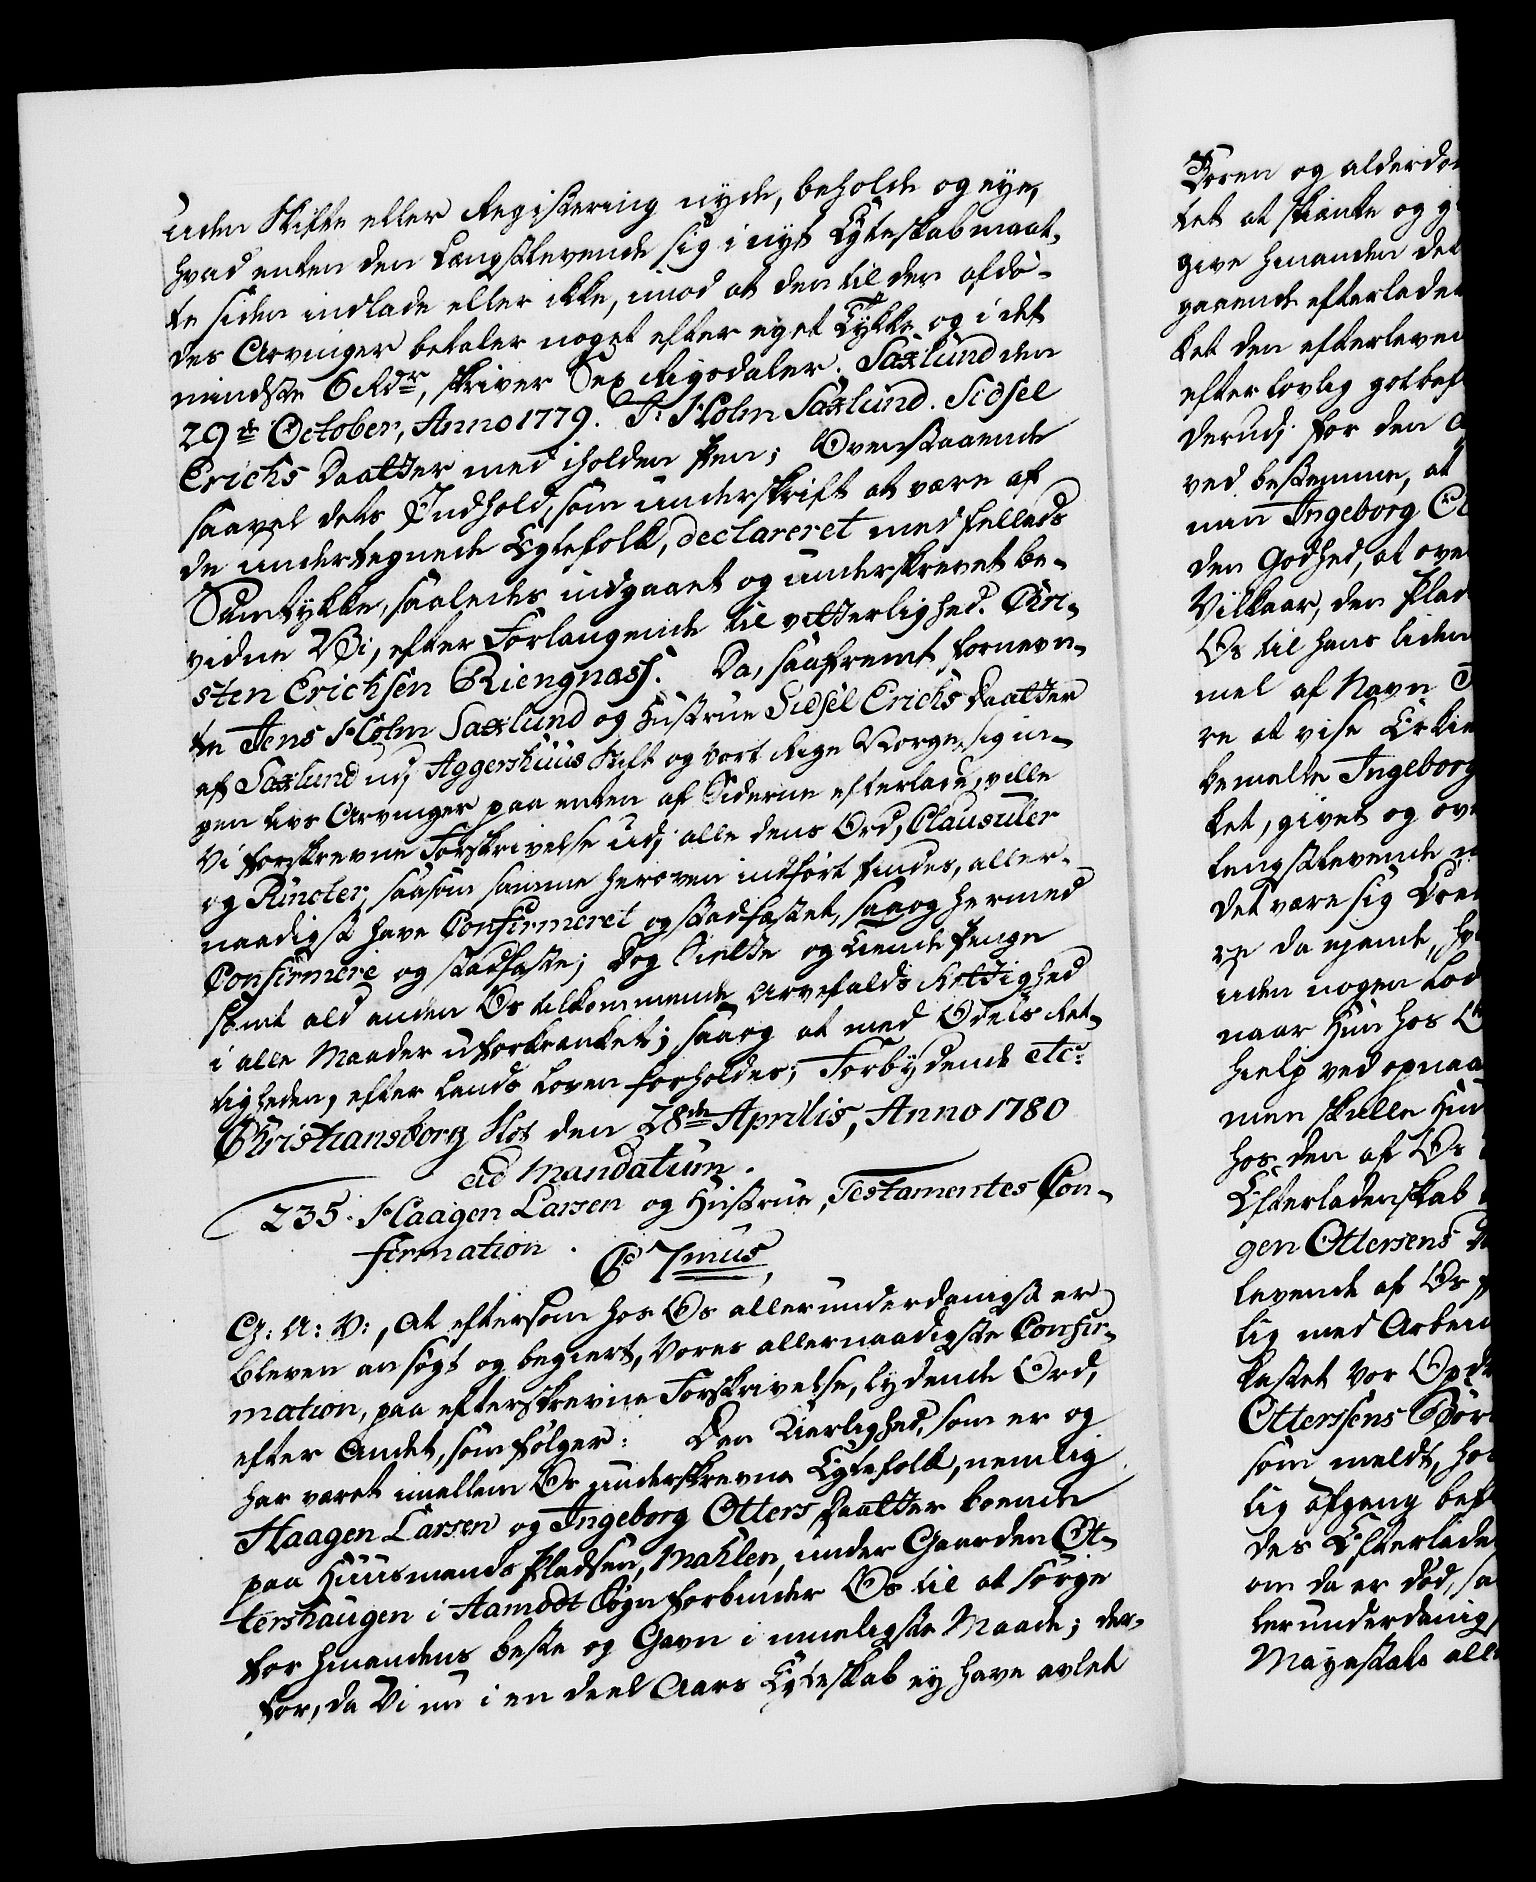 uden Skifte eller Registering nyde, beholde og eye,
hvad enten den Længstlevende sig i nyt Egteskab maat-
te siden indlade eller ikke, imod at den til den afdø-
des Arvinger betaler noget efter eget Tykke og i det
mindste 6 Rdr, skriver Sex Rigsdaler. Saxlund den
29de October, Anno 1779. J. Holm Saxlund. Sidsel
Erichs Daatter med iholden Pen; Ovenstaaende
saavel dets Indhold, som underskrift at være af
de undertegnede Egtefolk, declareret med fælleds
Samtykke, saaledes indgaaet og underskrevet be-
vidne Vi, efter Forlangende til vitterlighed. Cri-
sten Erichsen Riengnæss. Da, saafremt fornevn-
te Jens Holm Saxlund og Hustrue Sidsel Erichs Daatter
af Saxlund udj Aggershuus Stift og vort Rige Norge, sig in-
gen Livs Arvinger paa enten af Siderne efterlade, ville
Vi forskrevne Forskrivelse udj alle dens Ord, Clausuler
og Puncter, saasom samme heroven indført findes, aller-
naadigst have Confirmeret og stadfæstet, saa og hermed
Confirmere og stadfæste; Dog Siette og tiende Penge
samt ald anden Os tilkommende Arvefalds Rettighed
i alle Maader uforkrænket; saa og at med Odels Ret-
tigheden, efter Lands Loven forholdes; Forbydende etc:
Christiansborg Slot den 28de Aprilis, Anno 1780
ad Mandatum.
235. Haagen Larsen og Hustrue, Testamentes Con-
firmation. C 7mus,
G: A: V:, At eftersom hos Os allerunderdanigst er
bleven ansøgt og begiert, Vores allernaadigste Confir-
mation, paa efterskrevne Forskrivelse, lydende Ord,
efter Andet, som følger: Den Kierlighed, som er og
har været imellem Os underskrevne Egtefolk, nemlig
Haagen Larsen og Ingeborg Otters Daatter boende
paa Huusmands Pladsen, Mahlen, under Gaarden Ot-
tershaugen i Aamodt Sogn forbinder Os til at sørge
for hinandens beste og Gavn i mueligste Maade; der-
for, da Vi nu i en deel Aars Egteskab ey have avlet
Børn og alderdo
tet at skiänke og g
give hinanden det
gaaende efterlade
tet den efterleven
efter lovlig
derud; for den
ved bestemme, at
min Ingeborg
den Godhed, at ove
Vilkaar, den Plad
Os til hans liden
mel af Navn
re at vise
bemelte Ingeborg
ket, givet og ov
længstlevende
det være sig
re da eyende, hv
uden nogen Lod
naar Hun hos
hielp ved opnaa
men skulle Hun
hos den af Os
Efterladenskab
gen Ottersens
levende af Os
lig med Arbeid
kastet vor
Otterssens Bør
som meldt, ho
lig afgang bef
des Efterlade
om da er død, sa
lerunderdanig
Mayestæts all